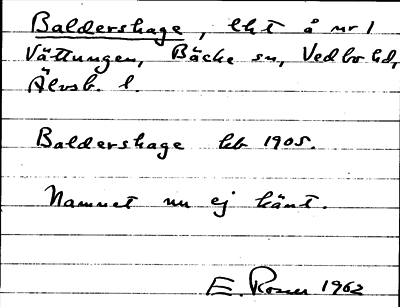 Baldershage, lht å nr 1
Vättungen, Bäcke sn, Vedbo hd,
Älvsb. l.
Baldershage hb 1905.
Namnet nu ej känt.
E. Rosen 1962